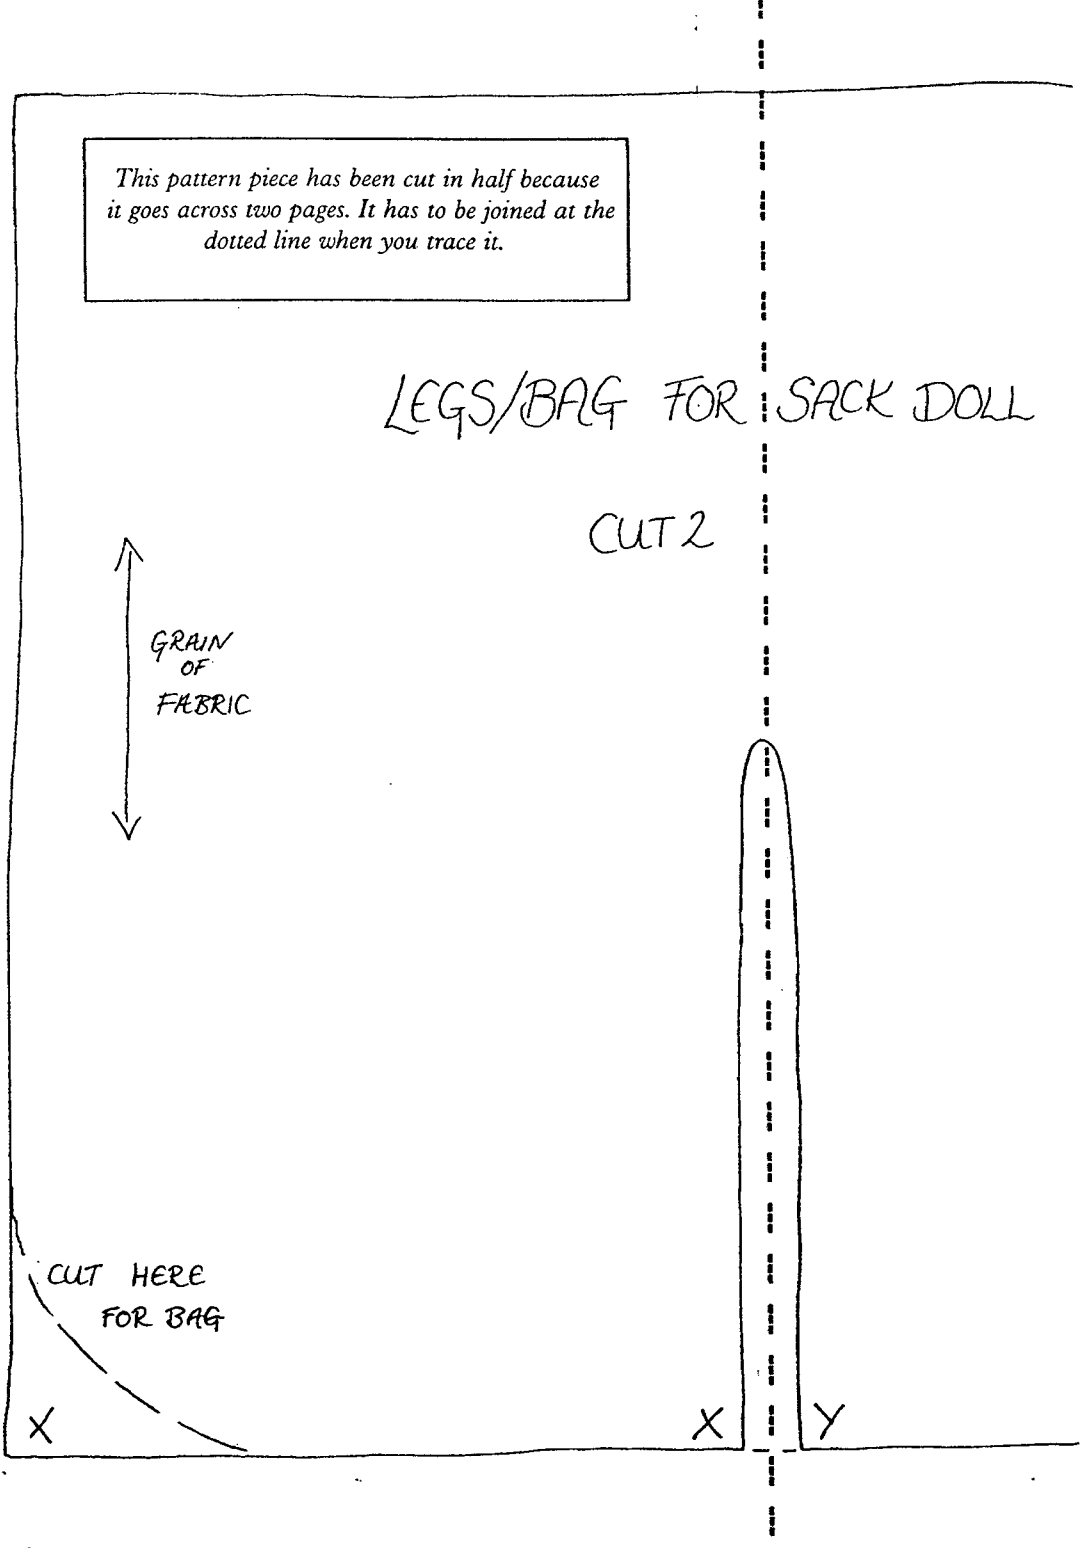 This pattern piece has been cut in half because
it goes across two pages. It has to be joined at the
dotted line when you trace it.
LEGS/BAG FOR SACK DOLL
CUT 2
GRAIN
OF
FABRIC
CUT HERE
FOR BAG
X X Y